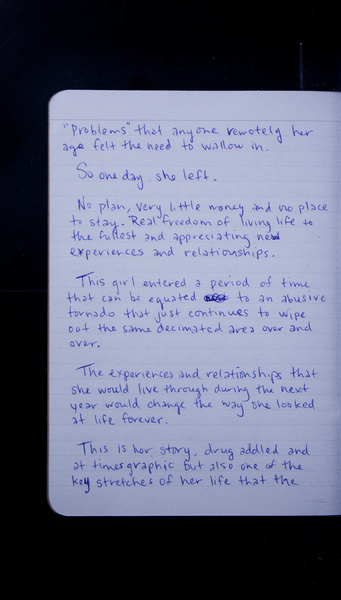 "Problems" that anyone remotely her
age felt the need to wallow in.
So one day, she left.
No plan, very little money and no place
to stay. Real freedom of living life to
the fullest and appreciating new
experiences and relationships.
This girl entered a period of time
that can be equated to an abusive
tornado that just continues to wipe
out the same decimated area over and
over.
The experiences and relationships that
she would live through during the next
year would change the way she looked
at life forever.
This is her story, drug addled and
at times graphic but also one of the
key stretches of her life that the